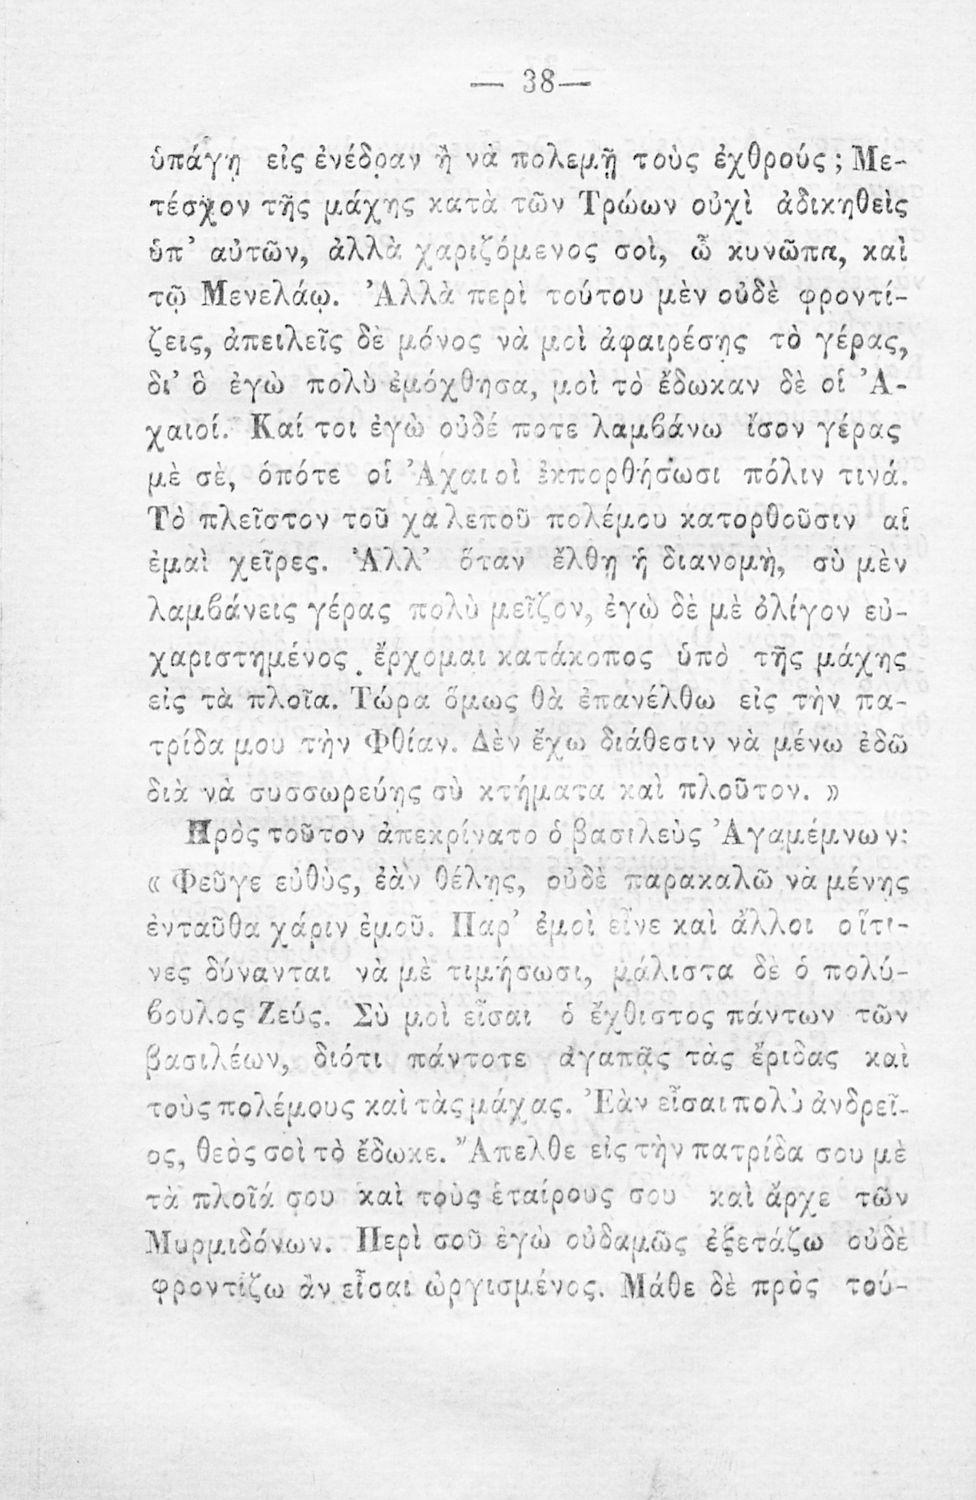 — 38—
ὑπάγῃ εἰς ἐνέδραν ἢ νὰ πολεμῇ τοὺς ἐχθρούς ; Με-
τέσχον τῆς μάχης κατὰ τῶν Τρώων οὐχὶ ἀδικηθεὶς
ὑπ᾽ αὐτῶν, ἀλλὰ χαριζόμενος σοὶ, ὦ κυνῶπα, καὶ
τῷ Μενελάῳ. Ἀλλὰ περὶ τούτου μὲν οὐδὲ φροντί-
ζεις, ἀπειλεῖς δὲ μόνος νὰ μοὶ ἀφαιρέσῃς τὸ γέρας,
δι᾽ ὃ ἐγὼ πολὺ ἐμόχθησα, μοὶ τὸ ἔδωκαν δὲ οἱ Ἀ-
χαιοί. Καί τοι ἐγὼ οὐδέ ποτε λαμβάνω ἴσον γέρας
μὲ σὲ, ὁπότε οἱ Ἀχαιοὶ ἐκπορθήσωσι πόλιν τινά.
Τὸ πλεῖστον τοῦ χαλεποῦ πολέμου κατορθοῦσιν αἱ
ἐμαὶ χεῖρες. Ἀλλ᾽ ὅταν ἔλθῃ ἡ διανομὴ, σὺ μὲν
λαμβάνεις γέρας πολὺ μεῖζον, ἐγὼ δὲ μὲ ὀλίγον εὐ-
χαριστημένος ἔρχομαι κατάκοπος ὑπὸ τῆς μάχης
εἰς τὰ πλοῖα. Τώρα ὅμως θὰ ἐπανέλθω εἰς τὴν πα-
τρίδα μου τὴν Φθίαν. Δὲν ἔχω διάθεσιν νὰ μένω ἐδῶ
διὰ νὰ συσσωρεύῃς σὺ κτήματα καὶ πλοῦτον. »
Πρὸς τοῦτον ἀπεκρίνατο ὁ βασιλεὺς Ἀγαμέμνων:
« Φεῦγε εὐθὺς, ἐὰν θέλῃς, οὐδὲ παρακαλῶ νὰ μένῃς
ἐνταῦθα χάριν ἐμοῦ. Παρ᾽ ἐμοὶ εἶνε καὶ ἄλλοι οἵτι-
νες δύνανται νὰ μὲ τιμήσωσι, μάλιστα δὲ ὁ πολύ-
βουλος Ζεύς. Σὺ μοὶ εἶσαι ὁ ἔχθιστος πάντων τῶν
βασιλέων, διότι πάντοτε ἀγαπᾷς τὰς ἔριδας καὶ
τοὺς πολέμους καὶ τὰς μάχας. Ἐὰν εἶσαι πολὺ ἀνδρεῖ-
ος, θεὸς σοὶ τὸ ἔδωκε. Ἄπελθε εἰς τὴν πατρίδα σου μὲ
τὰ πλοῖά σου καὶ τοὺς ἑταίρους σου καὶ ἄρχε τῶν
Μυρμιδόνων. Περὶ σοῦ ἐγὼ οὐδαμῶς ἐξετάζω οὐδὲ
φροντίζω ἂν εἶσαι ὠργισμένος. Μάθε δὲ πρὸς τού-